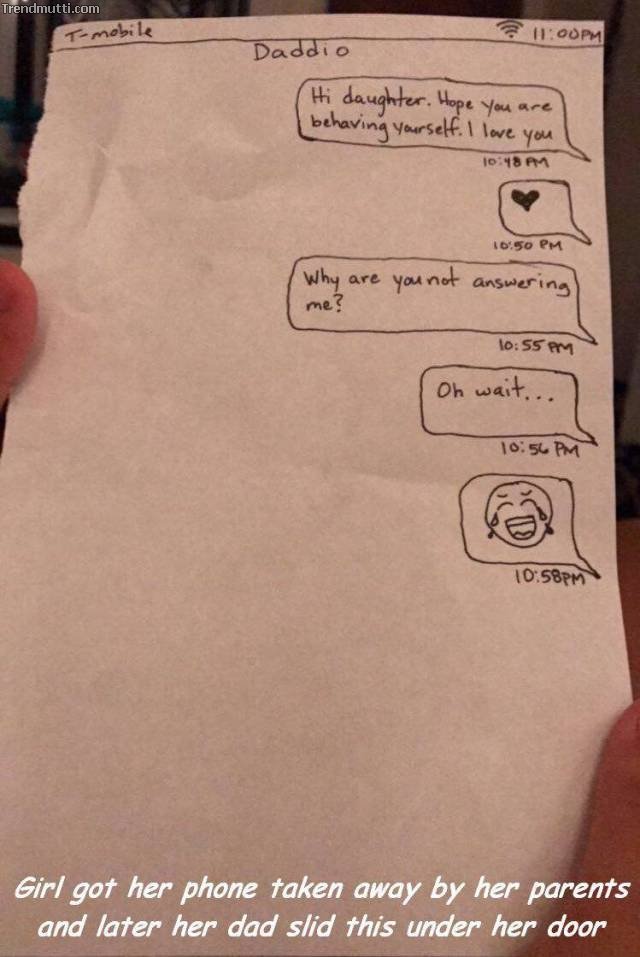 Trendmutti.com
T-mobile 11:00PM
Daddio
Hi daughter. Hope you are
behaving yourself. I love you
10:48 PM
10:50 PM
Why are you not answering
me?
10:55 PM
Oh wait...
10:56 PM
10:58PM
Girl got her phone taken away by her parents
and later her dad slid this under her door